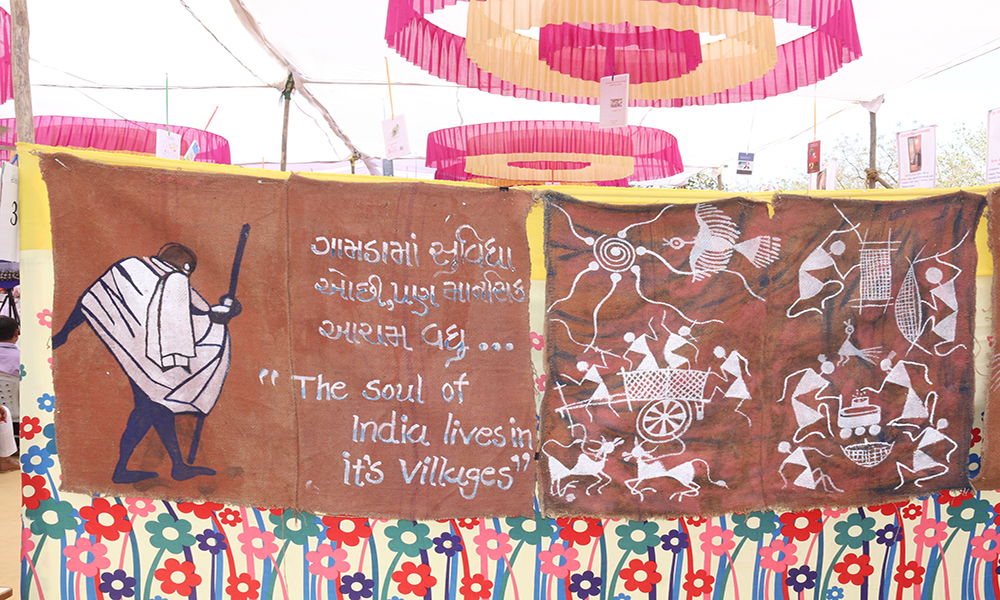 ગામડામાં સુવિધા
ઓછી, પણ માનસિક
આરામ વધુ ...
"The soul of
India lives in
it's villages"
3